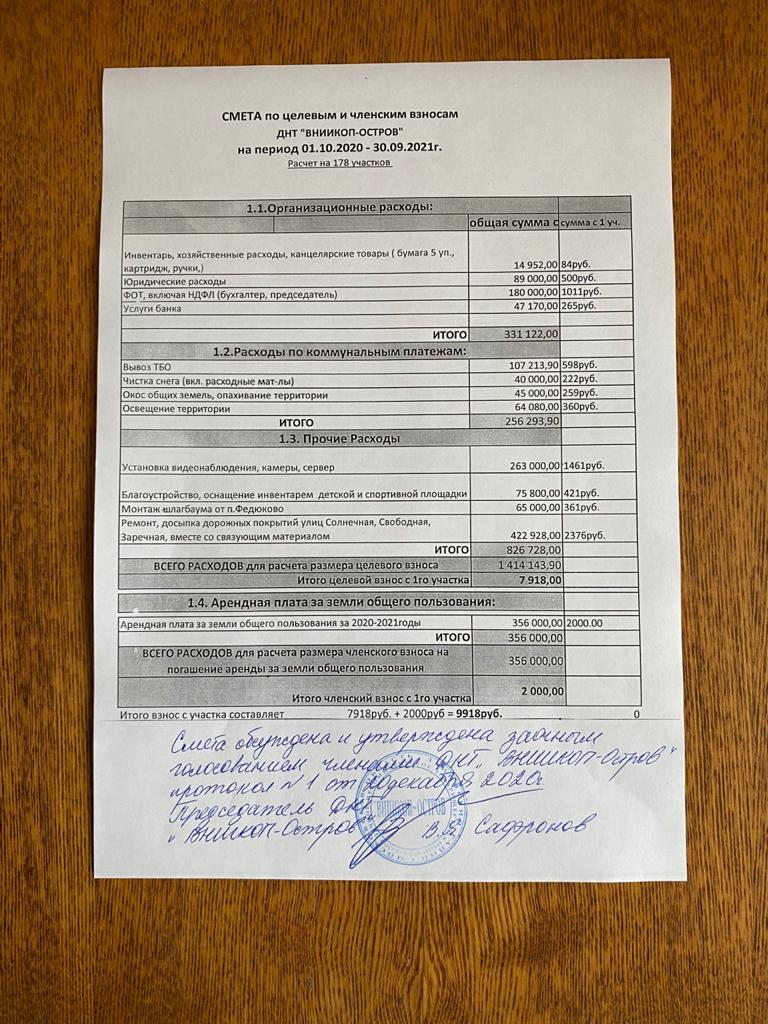 СМЕТА по целевым и членским взносам
ДНТ "ВНИИКОП-ОСТРОВ"
на период 01.10.2020 - 30.09.2021г.
Расчет на 178 участков
1.1.Организационные расходы:
общая сумма с сумма с 1 уч.
Инвентарь, хозяйственные расходы, канцелярские товары ( бумага 5 уп.,
картридж, ручки,) 14 952,00 84руб.
Юридические расходы 89 000,00 500руб.
ФОТ, включая НДФЛ (бухгалтер, председатель) 180 000,00 1011руб.
Услуги банка 47 170,00 265руб.
ИТОГО 331 122,00
1.2.Расходы по коммунальным платежам:
Вывоз ТБО 107 213,90 598руб.
Чистка снега (вкл. расходные мат-лы) 40 000,00 222руб.
Окос общих земель, опахивание территории 45 000,00 259руб.
Освещение территории 64 080,00 360руб.
ИТОГО 256 293,90
1.3. Прочие Расходы
Установка видеонаблюдения, камеры, сервер 263 000,00 1461руб.
Благоустройство, оснащение инвентарем детской и спортивной площадки 75 800,00 421руб.
Монтаж шлагбаума от п.Федюково 65 000,00 361руб.
Ремонт, досыпка дорожных покрытий улиц Солнечная, Свободная,
Заречная, вместе со связующим материалом 422 928,00 2376руб.
ИТОГО 826 728,00
ВСЕГО РАСХОДОВ для расчета размера целевого взноса 1 414 143,90
Итого целевой взнос с 1го участка 7 918,00
1.4. Арендная плата за земли общего пользования:
Арендная плата за земли общего пользования за 2020-2021годы 356 000,00 2000.00
ИТОГО 356 000,00
ВСЕГО РАСХОДОВ для расчета размера членского взноса на
погашение аренды за земли общего пользования 356 000,00
Итого членский взнос с 1го участка 2 000,00
Итого взнос с участка составляет 7918руб. + 2000руб = 9918руб. 0
Смета обсуждена и утверждена заочным
голосованием членами ДНТ „ВНИИКОП-Остров"
протокол №1 от 20 декабря 2020г.
Председатель ДНТ
„ВНИИКОП-Остров" В.Я. Сафронов
ВНИИКОП-ОСТРОВ